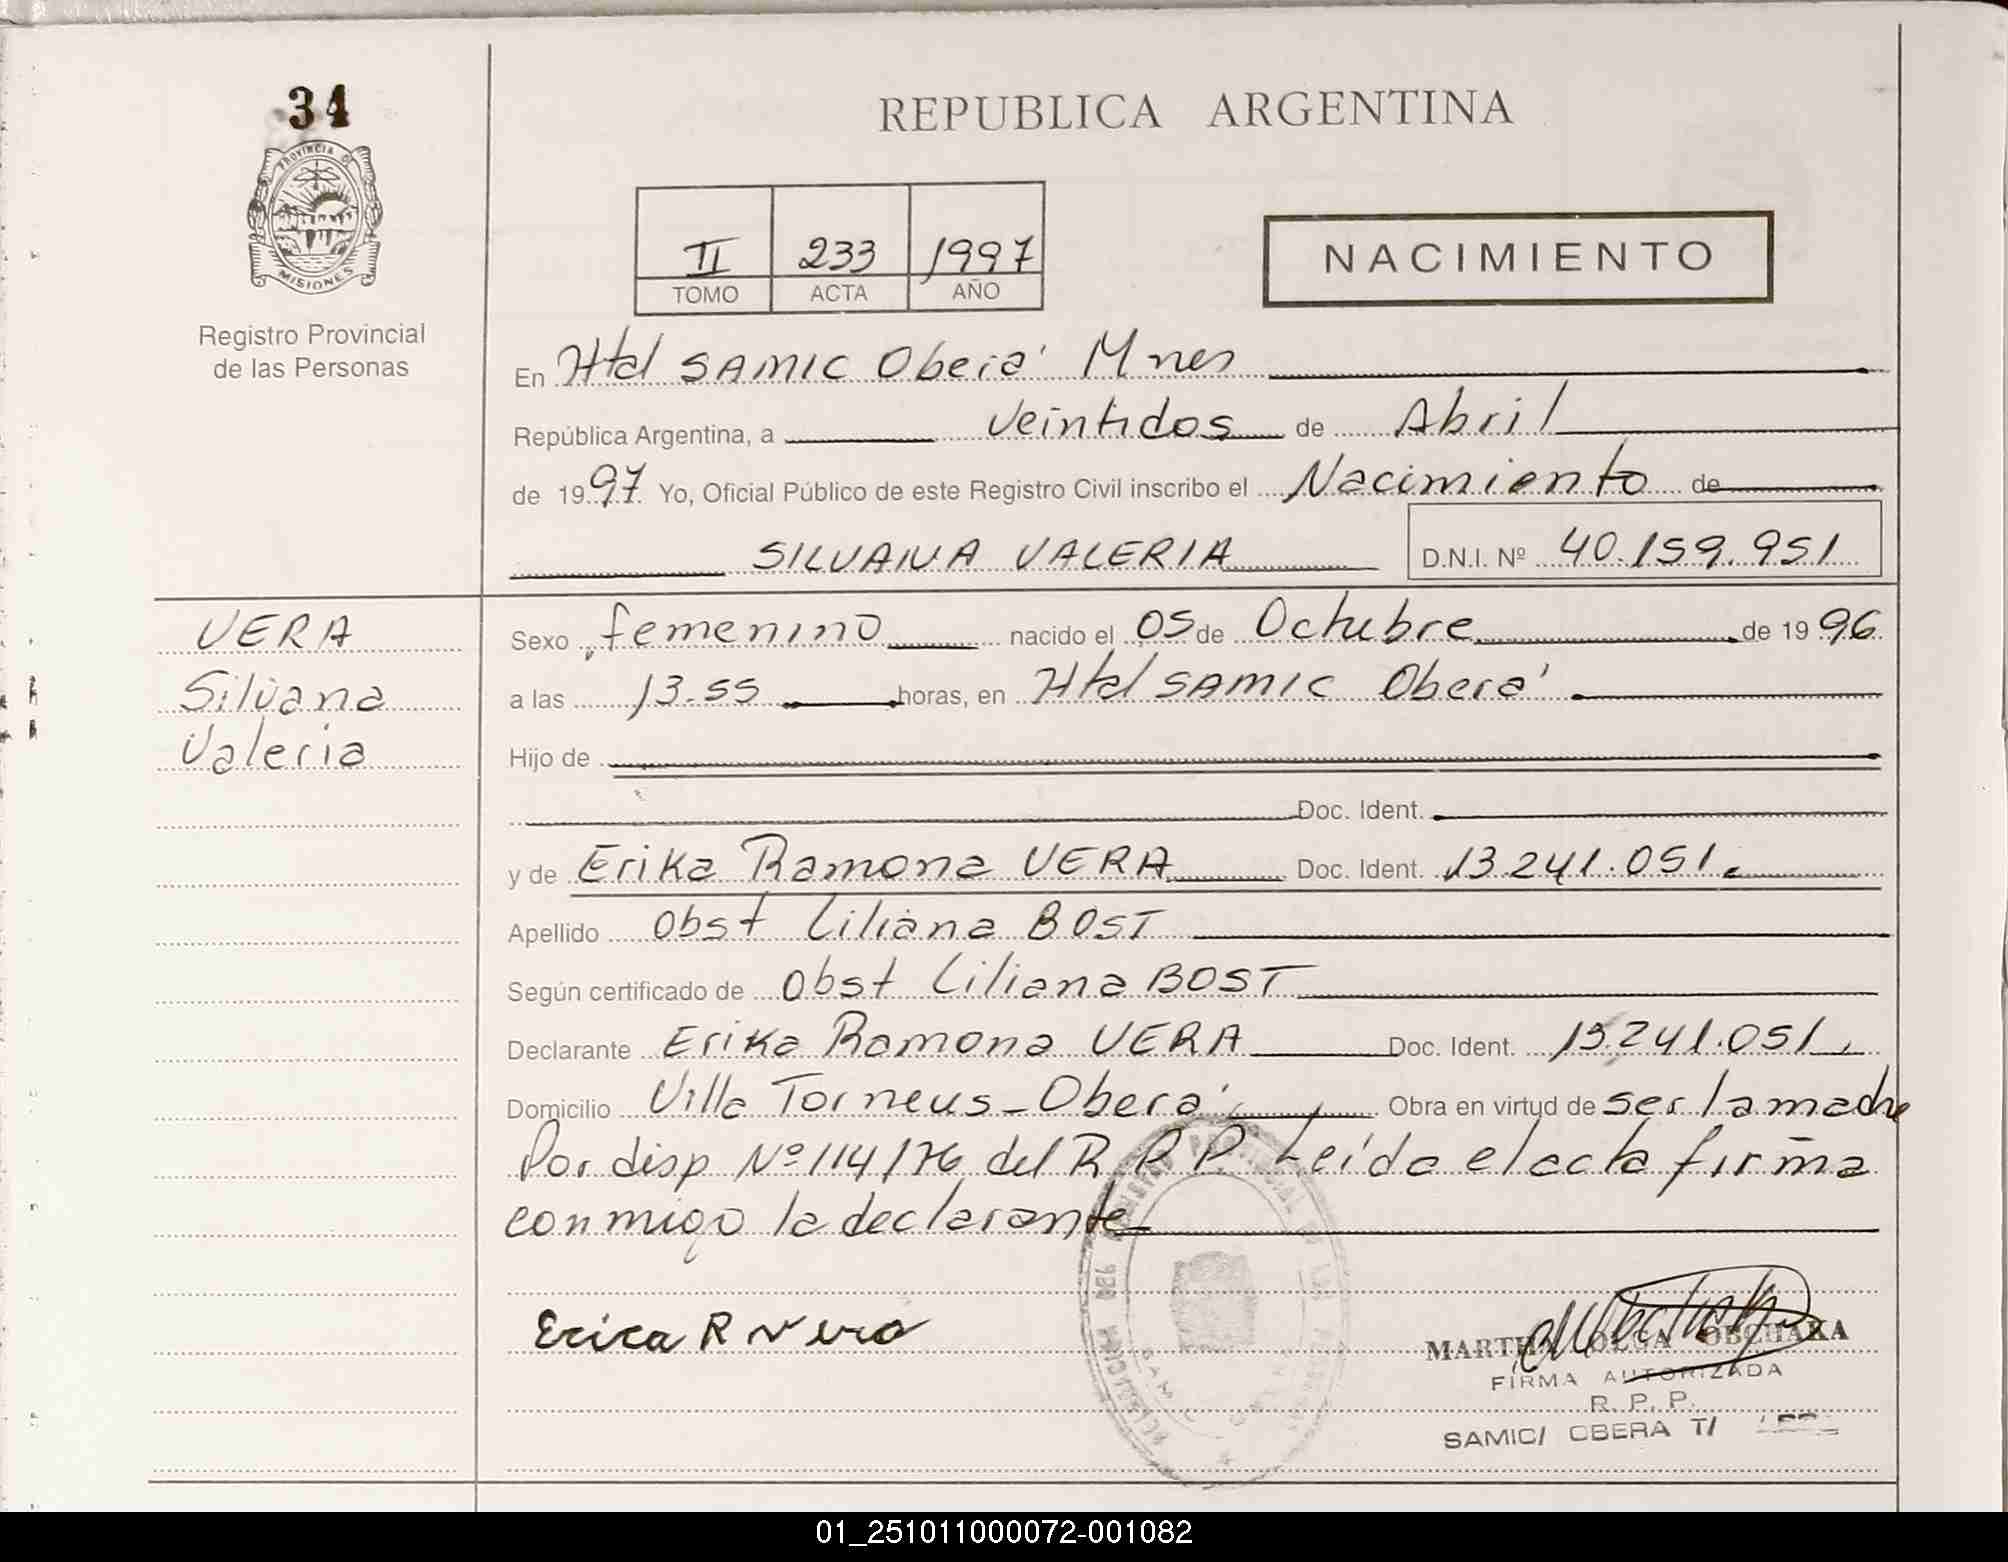 34
REPUBLICA ARGENTINA
PROVINCIA D
MISIONES
Registro Provincial
de las Personas
II 233 1997
TOMO ACTA AÑO
NACIMIENTO
En Htal SAMIC Oberá Mnes
República Argentina, a Veintidos de Abril
de 1997 Yo, Oficial Público de este Registro Civil inscribo el Nacimiento de
SILVANA VALERIA D.N.I. Nº 40.159.951
VERA
Silvana
Valeria
Sexo femenino nacido el 05 de Octubre de 1996
a las 13.55 horas, en Htal SAMIC Oberá
Hijo de
Doc. Ident.
y de Erika Ramona VERA Doc. Ident. 13.241.051.
Apellido Obst Liliana BOST
Según certificado de Obst Liliana BOST
Declarante Erika Ramona VERA Doc. Ident. 13.241.051.
Domicilio Villa Torneus - Oberá Obra en virtud de ser la madre
Por disp Nº 114/76 del R P P. Leída el acta firma
conmigo la declarante
Erica R Vera
MARTHA OLGA OBCHAKA
FIRMA AUTORIZADA
R. P. P.
SAMIC/ OBERA T/
01_251011000072-001082